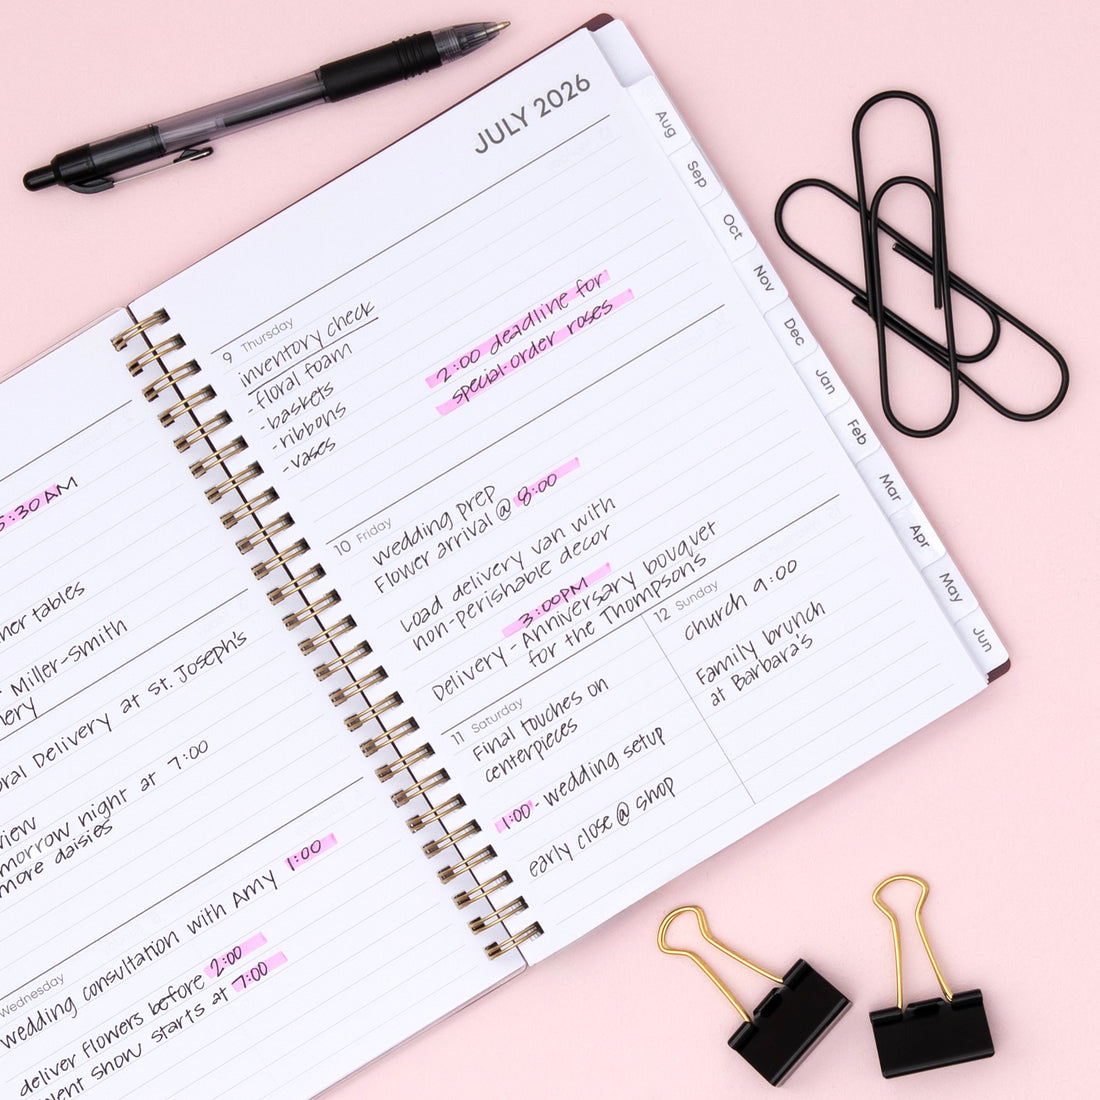 5:30 AM
tables
Miller-Smith
Delivery at St. Joseph's
night at 7:00
more daisies
Wednesday
wedding consultation with Amy 1:00
deliver flowers before 2:00
show starts at 7:00
JULY 2026
9 Thursday
inventory check
-floral foam
-baskets
-ribbons
-vases
2:00 deadline for
special-order roses
10 Friday
wedding prep
Flower arrival @ 8:00
Load delivery van with
non-perishable decor
3:00PM
Delivery - Anniversary bouquet
for the Thompsons
11 Saturday
Final touches on
centerpieces
1:00 - wedding setup
early close @ shop
12 Sunday
church 9:00
Family brunch
at Barbara's
Aug
Sep
Oct
Nov
Dec
Jan
Feb
Mar
Apr
May
Jun